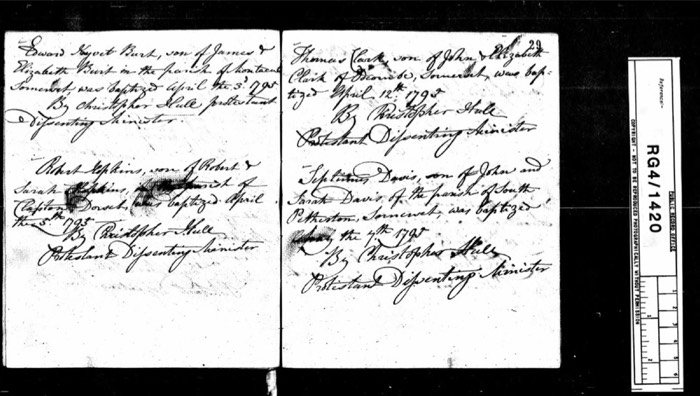 Edward Hyvet Burt, son of James &
Elizabeth Burt in the parish of
Somerset, was baptized April the 3d 1795
By Christopher Hull protestant
Dissenting Minister
Robert Hopkins, son of Robert &
Sarah Hopkins, in the parish of
Dorset, was baptized April
the 5th 1795
By Christopher Hull
Protestant Dissenting Minister
29
Thomas Clark, son of John & Elizabeth
Clark of Odcombe, Somerset, was bap-
tized April 12th 1795
By Christopher Hull
Protestant Dissenting Minister
Septimus Davis, son of John and
Sarah Davis of the parish of South
Petherton, Somerset, was baptized
the 7th 1795
By Christopher Hull
Protestant Dissenting Minister
Reference:-
PUBLIC RECORD OFFICE
RG4/1420
COPYRIGHT - NOT TO BE REPRODUCED PHOTOGRAPHICALLY WITHOUT PERMISSION
1
2